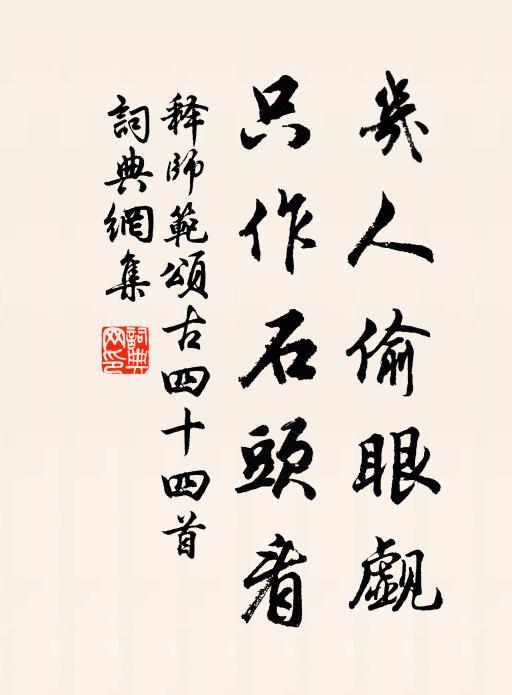 幾人偷眼覷
只作石頭看
释師範頌古四十四首
詞典網集
詞典
网印